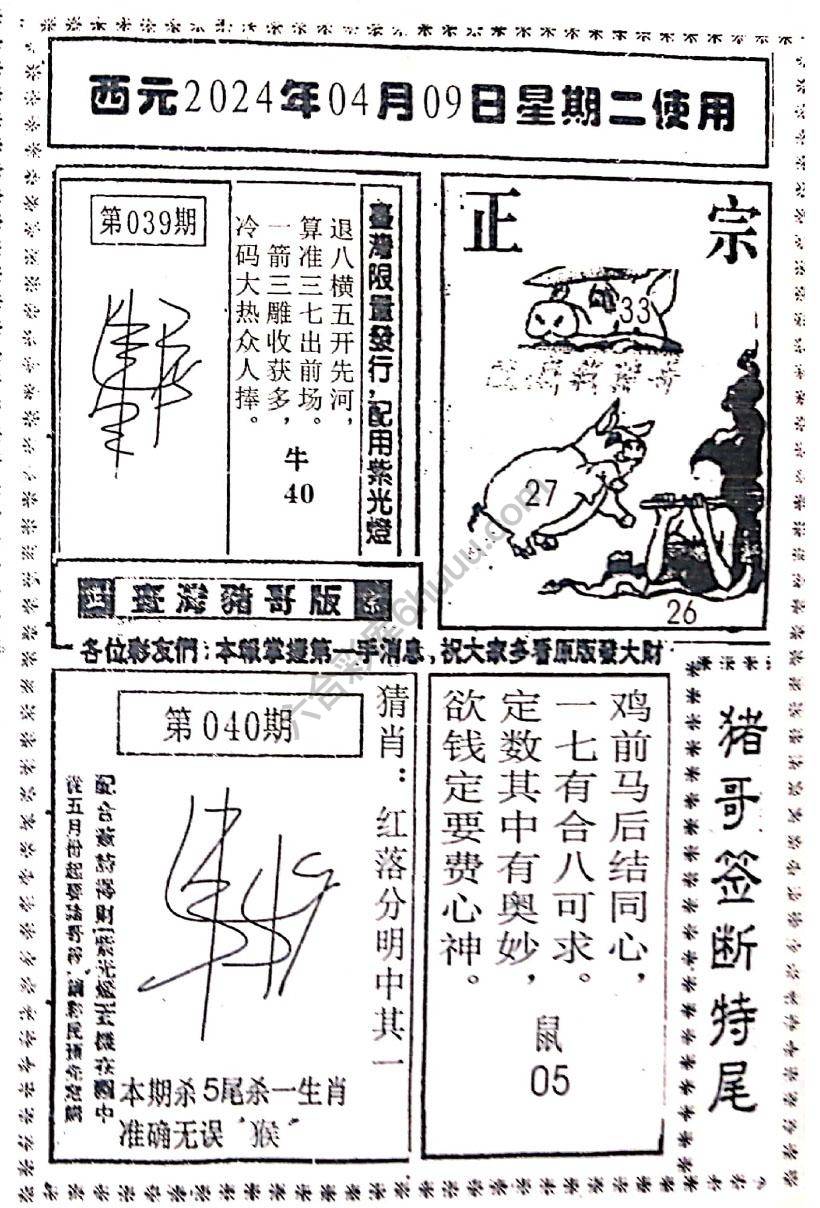 西元2024年04月09日星期二使用
第039期
退八横五开先河，
算准三七出前场。
一箭三雕收获多，
冷码大热众人捧。
牛
40
臺灣限量發行，配用紫光燈
正宗
33
27
26
臺灣豬哥版
各位彩友們：本報掌握第一手消息，祝大家多看原版發大財
第040期
猜肖：红落分明中其一
本期杀5尾杀一生肖
准确无误“猴”
鸡前马后结同心，
一七有合八可求。
定数其中有奥妙，
欲钱定要费心神。
鼠
05
猪哥签断特尾
六合彩库6huuu.com